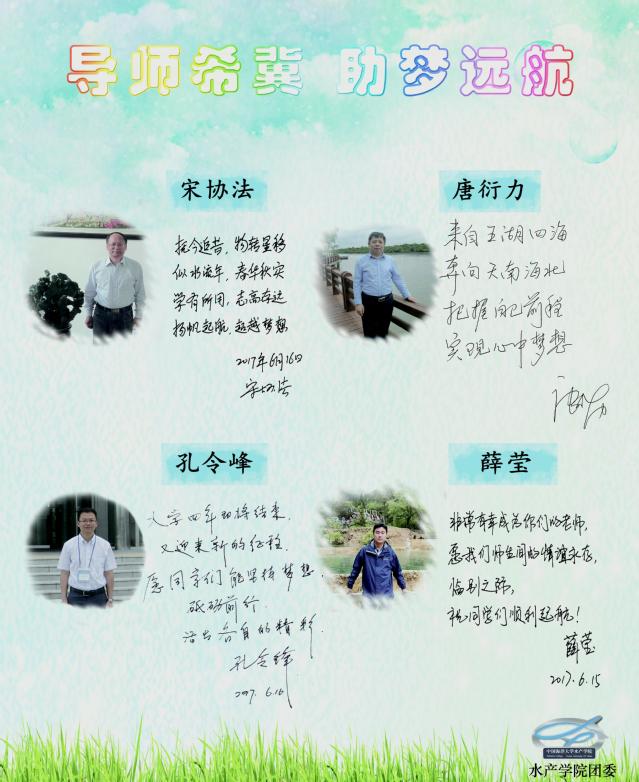 导师希冀 助梦远航
宋协法
抚今追昔，物转星移
似水流年，春华秋实
学有所用，志高存远
扬帆起航，超越梦想
2017年6月16日
宋协法
唐衍力
来自五湖四海
奔向天南海北
把握自己前程
实现心中梦想
孔令峰
大学四年即将结束，
又迎来新的征程。
愿同学们能坚持梦想，
砥砺前行，
活出各自的精彩。
孔令峰
2017.6.16
薛莹
非常有幸成为你们的老师，
愿我们师生间的情谊永存，
临别之际，
祝同学们顺利起航！
薛莹
2017.6.15
中国海洋大学水产学院
水产学院团委